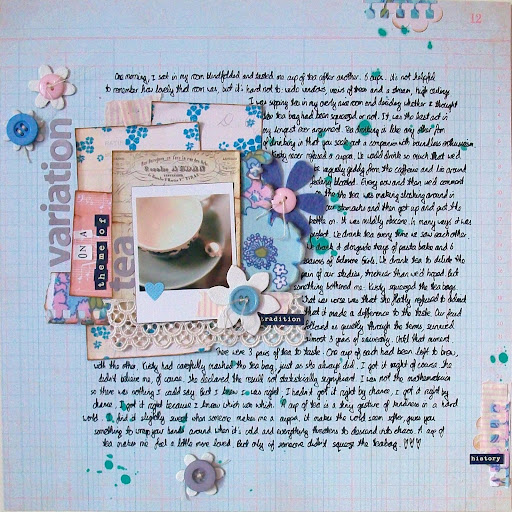 12
One morning, I sat in my room blindfolded and tasted one cup of tea after another. 6 cups. It's not helpful
to remember how lovely that room was, but it's hard not to.
I was sipping tea in my poorly room and deciding whether I thought
tea bag had been squeezed or not. It was the best and
longest ever argument. Tea drinking is like any other form
of drinking in that you seek out a companion with boundless enthusiasm
never refused a cuppa. We would drink so much that we'd
be vaguely giddy from the caffeine and lie around
feeling bloated. Every now and then we'd comment
the tea was making sloshing around in
our stomachs and then get up and put the
kettle on. It was mildly obscene. In many ways it was
perfect. We drank tea every time we saw each other.
We drank it alongside trays of pasta bake and 6
seasons of Gilmore Girls. We drank tea to dilute the
pain of our studies, thicker than we'd hoped. But
something bothered me. Kirsty squeezed the tea bags.
What was worse was that she flatly refused to admit
that it made a difference to the taste. Our feud
quietly through the terms
almost 3 years of university. Until that moment
There were 3 pairs of tea to taste. One cup of each had been left to brew,
with the other, Kirsty had carefully mashed the tea bag, just as she always did. I got it right of course. She
didn't believe me, of course. She declared the result not statistically significant. I was not the mathematician
so there was nothing I could say. But I knew I was right. I hadn't got it right by chance, I got it right by
chance. I got it right because I knew which was which. A cup of tea is a tiny gesture of kindness in a hard
world. I find it slightly when someone makes me a cuppa. It makes the world seem softer, gives you
something to wrap your hands around when it's cold and everything threatens to descend into chaos. A cup of
tea makes me feel a little more loved. But only if someone didn't squeeze the teabag.
variation
ON A
theme of
tea
tradition
history